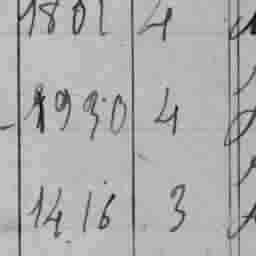 1801 4
1930 4
14.16 3